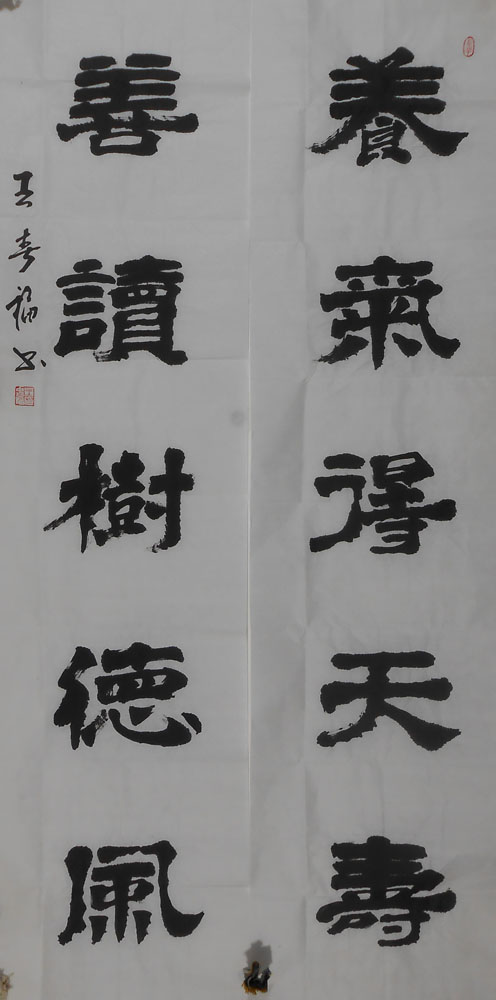 養氣得天壽
善讀樹德風
王春福书